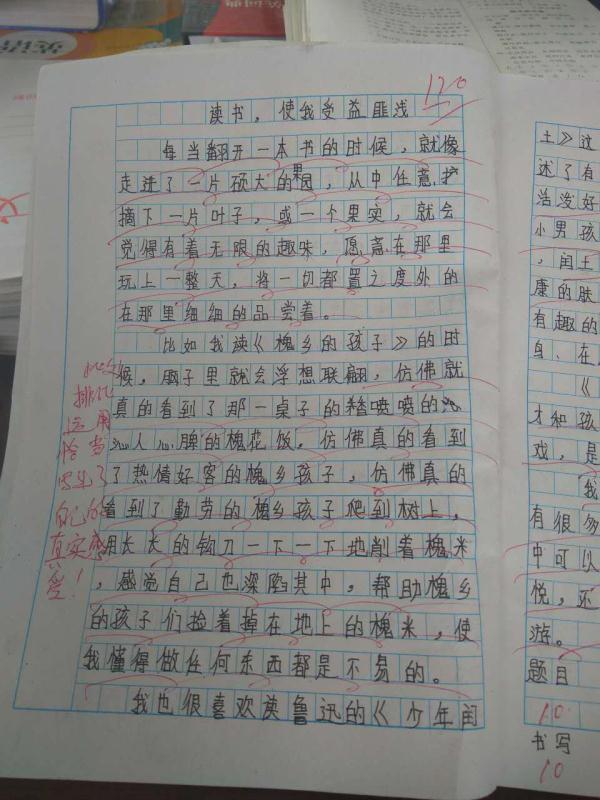 120
读书，使我受益匪浅
每当翻开一本书的时候，就像
走进了一片硕大的果园，从中任意
摘下一片叶子，或一个果实，就会
觉得有着无限的趣味，愿意在那里
玩上一整天，将一切都置之度外的
在那里细细的品尝着。
比如我读《槐乡的孩子》的时
候，脑子里就会浮想联翩，仿佛就
真的看到了那一桌子的喷喷的
沁人心脾的槐花饭，仿佛真的看到
了热情好客的槐乡孩子，仿佛真的
看到了勤劳的槐乡孩子爬到树上，
用长长的钩刀一下一下地削着槐米
，感觉自己也深陷其中，帮助槐乡
的孩子们捡着掉在地上的槐米，使
我懂得做任何东西都是不易的。
我也很喜欢读鲁迅的《少年闰
此处
排比
运用
恰当
写出了
自己的
真实感
受！
土》这
述了有
治没好
小男孩
，闰土
康的肤
有趣的
鸟、在
《
才和孩
戏，是
我
有很多
中可以
悦，还
游。
题目
10
书写
10